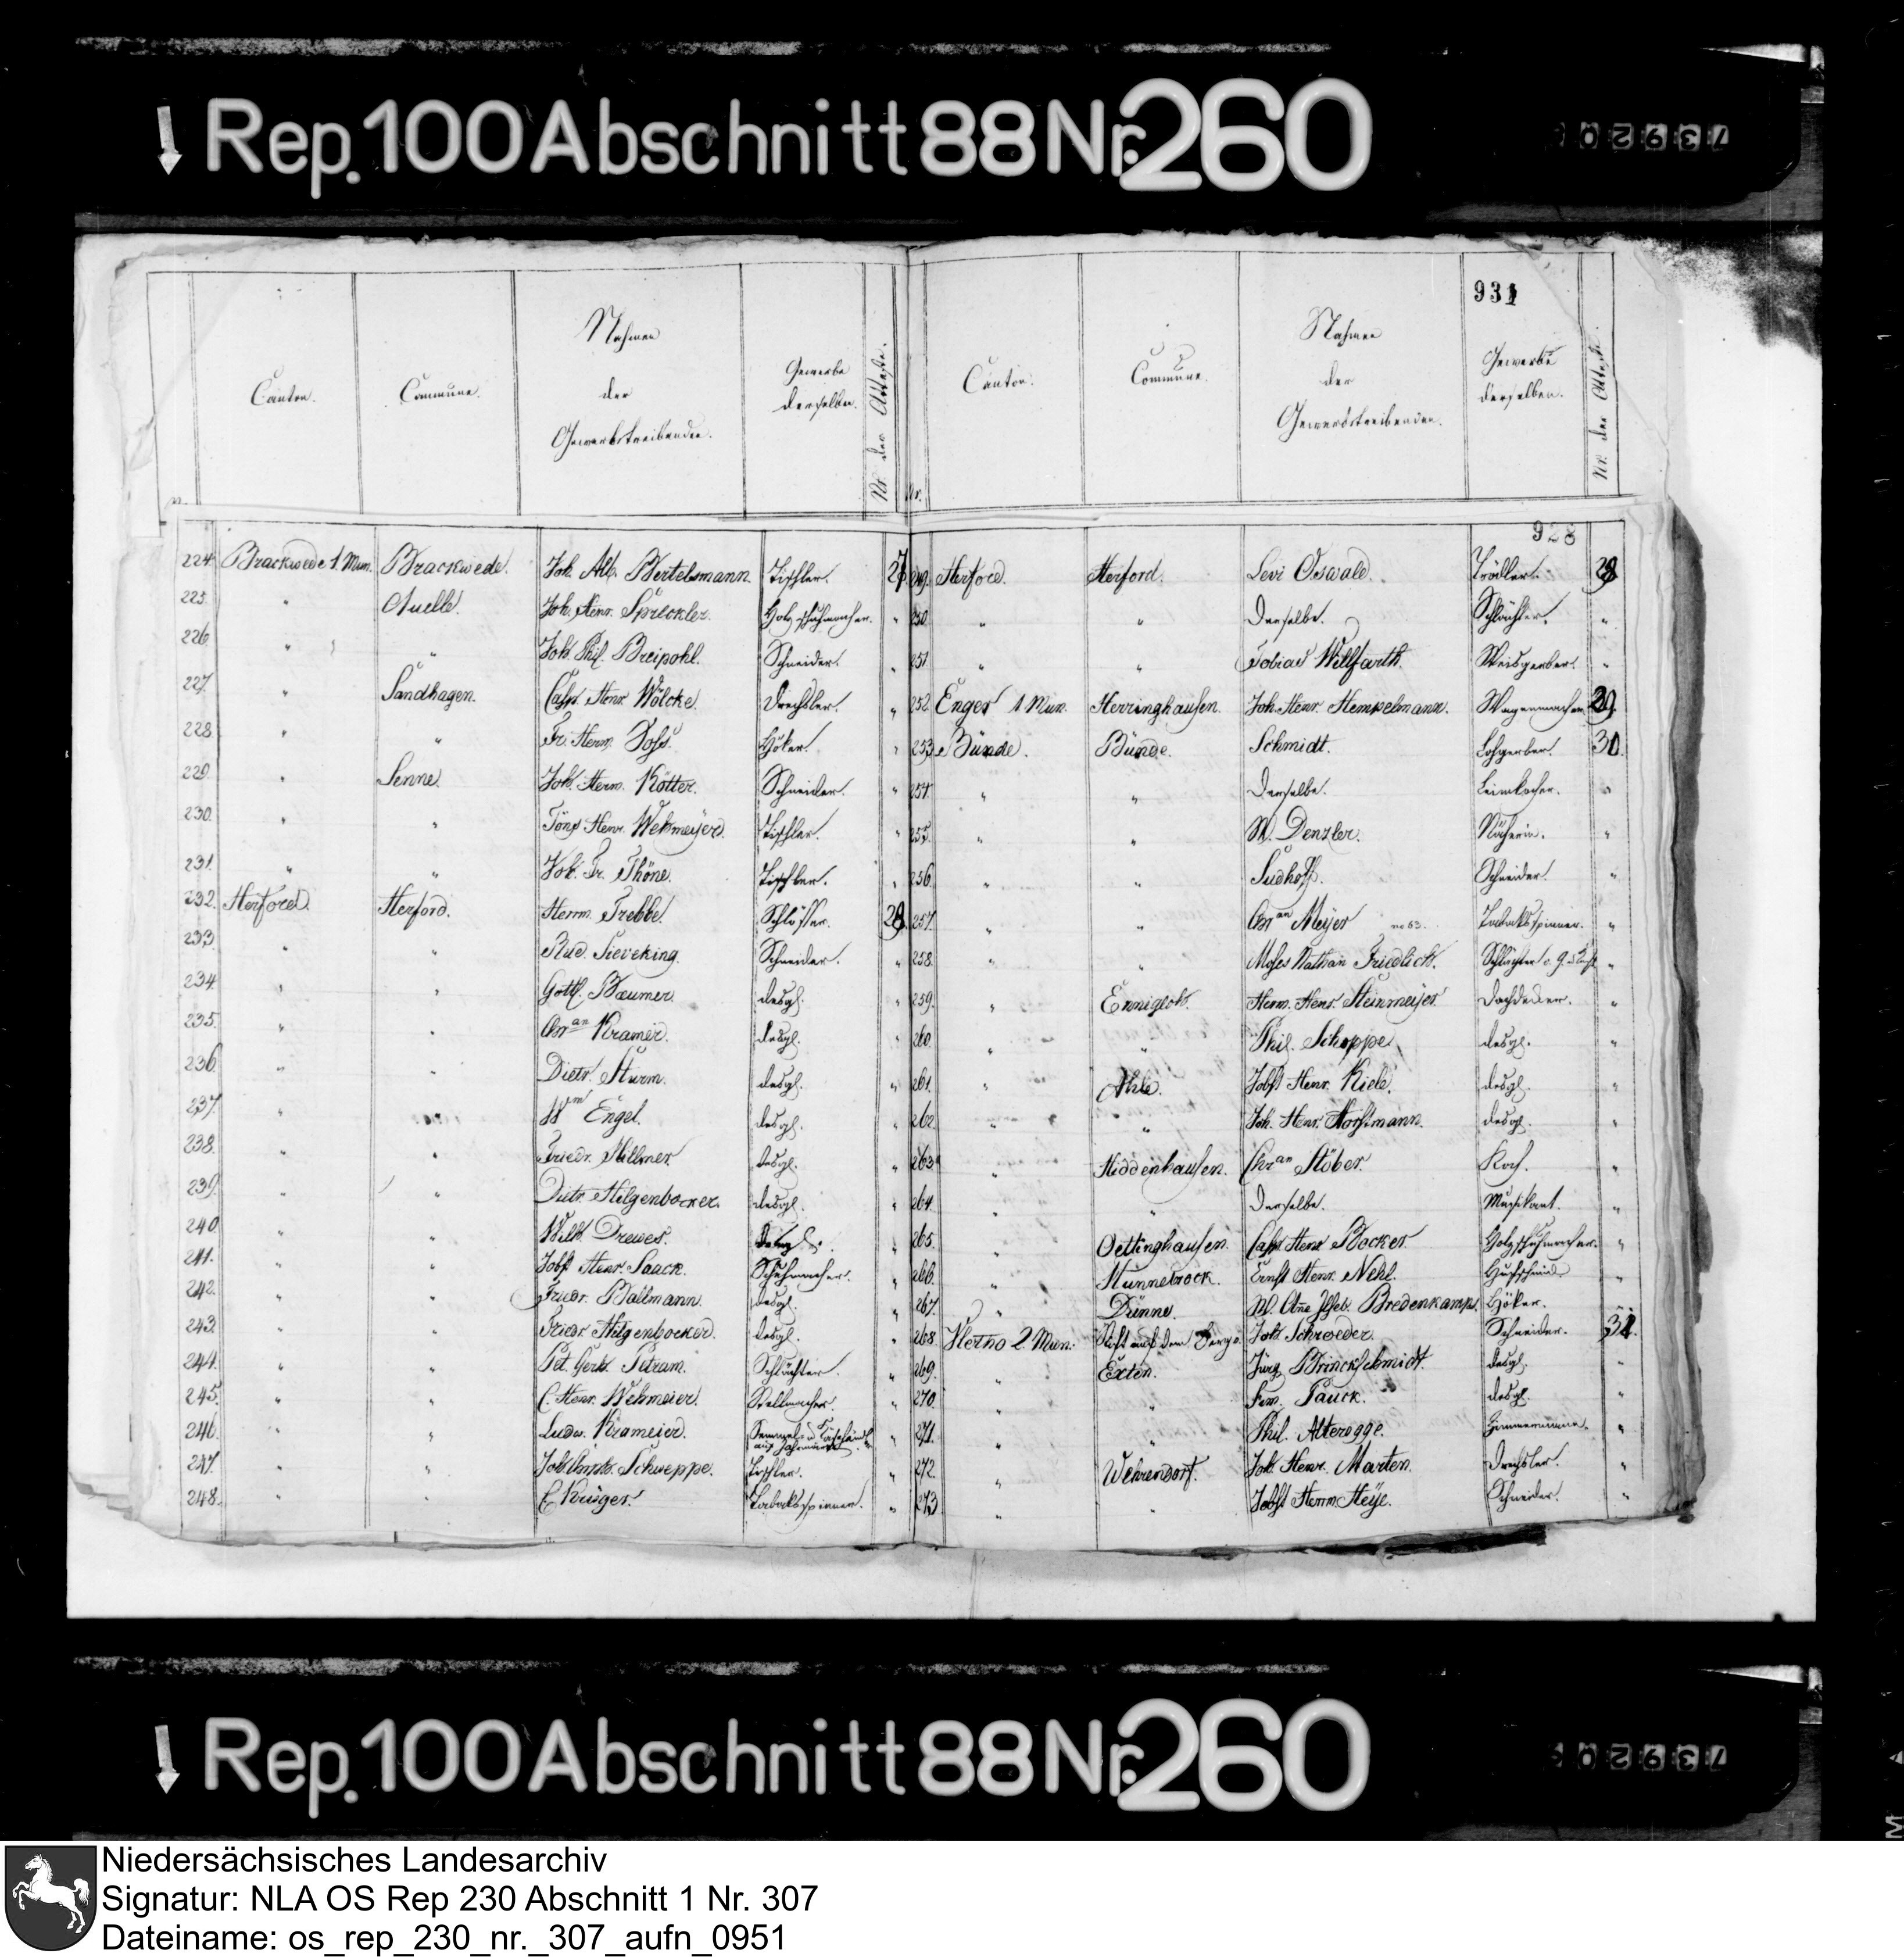 Rep. 100 Abschnitt 88 Nr. 260
73920
931
Nr. Canton. Commune. Nahmen der Gewerbetreibenden. Gewerbe derselben. Nr. der Atteste.
224. Brackwede 1. Mun. Brackwede. Joh. Alb. Bertelsmann. Tischler. 27
225. " Quelle. Joh. Henr. Spreckler. Holzschuhmacher. "
226. " " Joh. Phil. Breipohl. Schneider. "
227. " Sandhagen. Casp. Henr. Wölcke. Drechsler. "
228. " " Fr. Herm. Höker. "
229. " Senne. Joh. Herm. Kötter. Schneider. "
230. " " Töns Henr. Wehmeyer. Tischler. "
231. " " Joh. Fr. Thöne. Tischler. "
232. Herford. Herford. Herrm. Trebbe. Schlosser. 28.
233. " " Rud. Sieveking. Schneider. "
234. " " Gottl. Baeumer. desgl. "
235. " " Chr.an Kramer. desgl. "
236. " " Dietr. Sturm. desgl. "
237. " " W.m Engel. desgl. "
238. " " Friedr. Hillmer. desgl. "
239. " " Dietr. Hilgenbocker. desgl. "
240. " " Wilh. Drewes. desgl. "
241. " " Jobst Henr. Saack. Schuhmacher. "
242. " " Friedr. Ballmann. desgl. "
243. " " Friedr. Hilgenbocker. desgl. "
244. " " Pet. Gerh. Petram. Schlächter. "
245. " " C. Henr. Wehmeier. Stellmacher. "
246. " " Ludw. Krameier. Semmel- u auf Jahrmärkten "
247. " " Joh. Schweppe. Tischler. "
248. " " C Krüger. Tabaksspinner. "
Nr. Canton. Commune. Nahmen der Gewerbetreibenden. Gewerbe derselben. Nr. der Atteste.
928
249. Herford. Herford. Levi Oswald. Trödler.
250. " " Derselbe. Schlächter. "
251. " " Tobias Willfarth. Weisgerber. "
252. Enger 1 Mun. Herringhausen. Joh. Henr. Hempelmann. Wagenmacher 29.
253. Bünde. Bünde. Schmidt. Lohgerber. 30.
254. " " Derselbe. Leimkocher. "
255. " " W. Denzler. Näherin. "
256. " " Sudhoff. Schneider. "
257. " " Chr.an Meyer no 63. Tabaksspinner. "
258. " " Moses Nathan Friedlich. Schlächter "
259. " Ennigloh. Herm. Henr. Steinmeyer. Dachdecker. "
260. " " Phil. Schoppe. desgl. "
261. " Ahle. Jobst Henr. Kiele. desgl. "
262. " " Joh. Henr. Horstmann. desgl. "
263. " Hiddenhausen. Chr.an Stöber. Koch. "
264. " " Derselbe. Musikant. "
265. " Oettinghausen. Casp. Henr Bocker. Holzschuhmacher. "
266. " Hunnebrock. Ernst Henr. Nehl. Hufschmid. "
267. " Dünne. W. Bredenkamp. Höker. "
268. Vlotho 2 Mun. auf dem Berge. Joh. Schroeder. Schneider. 31.
269. " Exten. Jürg. Brinckschmidt. desgl. "
270. " " Pauck. desgl. "
271. " " Phil. Alterogge. Zimmermann. "
272. " Wehrendorf. Joh. Henr. Marten. Drechsler. "
273 " " Jobst Herrm. Heye. Schneider. "
Rep. 100 Abschnitt 88 Nr. 260
73920
Niedersächsisches Landesarchiv
Signatur: NLA OS Rep 230 Abschnitt 1 Nr. 307
Dateiname: os_rep_230_nr._307_aufn_0951